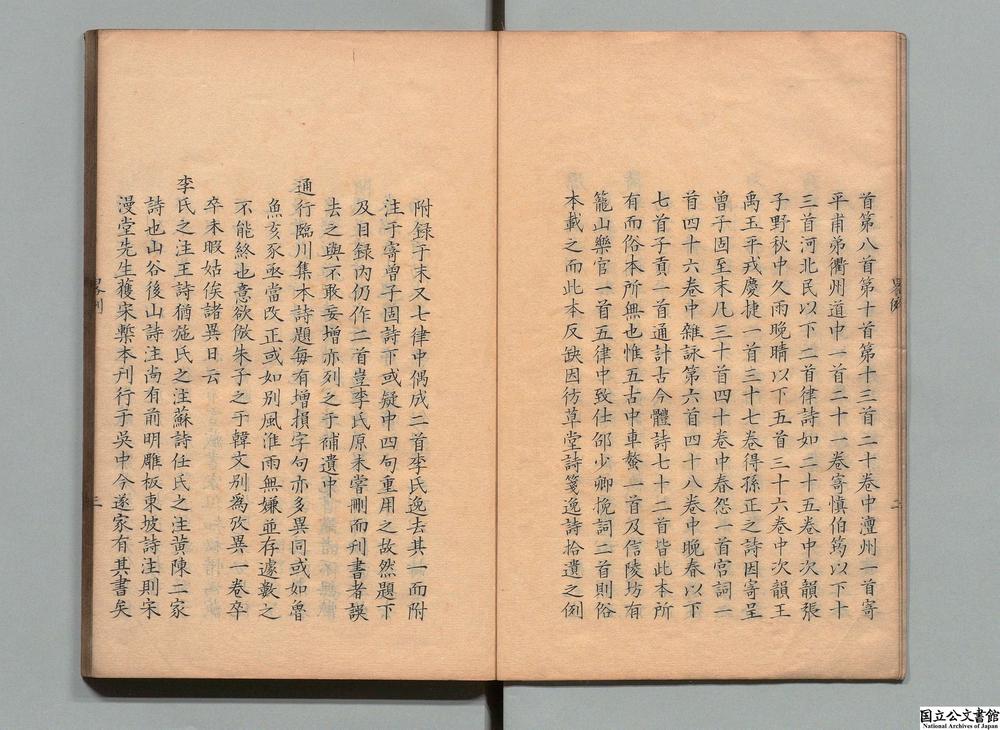 首第八首第十首第十三首二十卷中澶州一首寄
平甫弟衢州道中一首二十一卷寄慎伯筠以下十
三首河北民以下二首律詩如二十五卷中次韻張
子野秋中久雨晚晴以下五首三十六卷中次韻王
禹玉平戎慶捷一首三十七卷得孫正之詩因寄呈
曾子固至末凡三十首四十卷中春怨一首宮詞一
首四十六卷中雜詠第六首四十八卷中晚春以下
七首子貢一首通計古今體詩七十二首皆此本所
有而俗本所無也惟五古中車螯一首及信陵坊有
籠山樂官一首五律中致仕邵少卿挽詞二首則俗
本載之而此本反缺因仿草堂詩箋逸詩拾遺之例
附錄于末又七律中偶成二首李氏逸去其一而附
注于寄曾子固詩下或疑中四句重用之故然題下
及目録內仍作二首豈李氏原未嘗刪而刊書者誤
去之與不敢妄增亦列之于補遺中
通行臨川集本詩題每有增損字句亦多異同或如魯
魚亥豕亟當改正或如別風淮雨無嫌並存遽數之
不能終也意欲倣朱子之于韓文別為攷異一卷卒
卒未暇姑俟諸異日云
李氏之注王詩猶施氏之注蘇詩任氏之注黃陳二家
詩也山谷後山詩注尚有前明雕板東坡詩注則宋
漫堂先生獲宋槧本刊行于吳中今遂家有其書矣
畧例
二
畧例
三
国立公文書館
National Archives of Japan